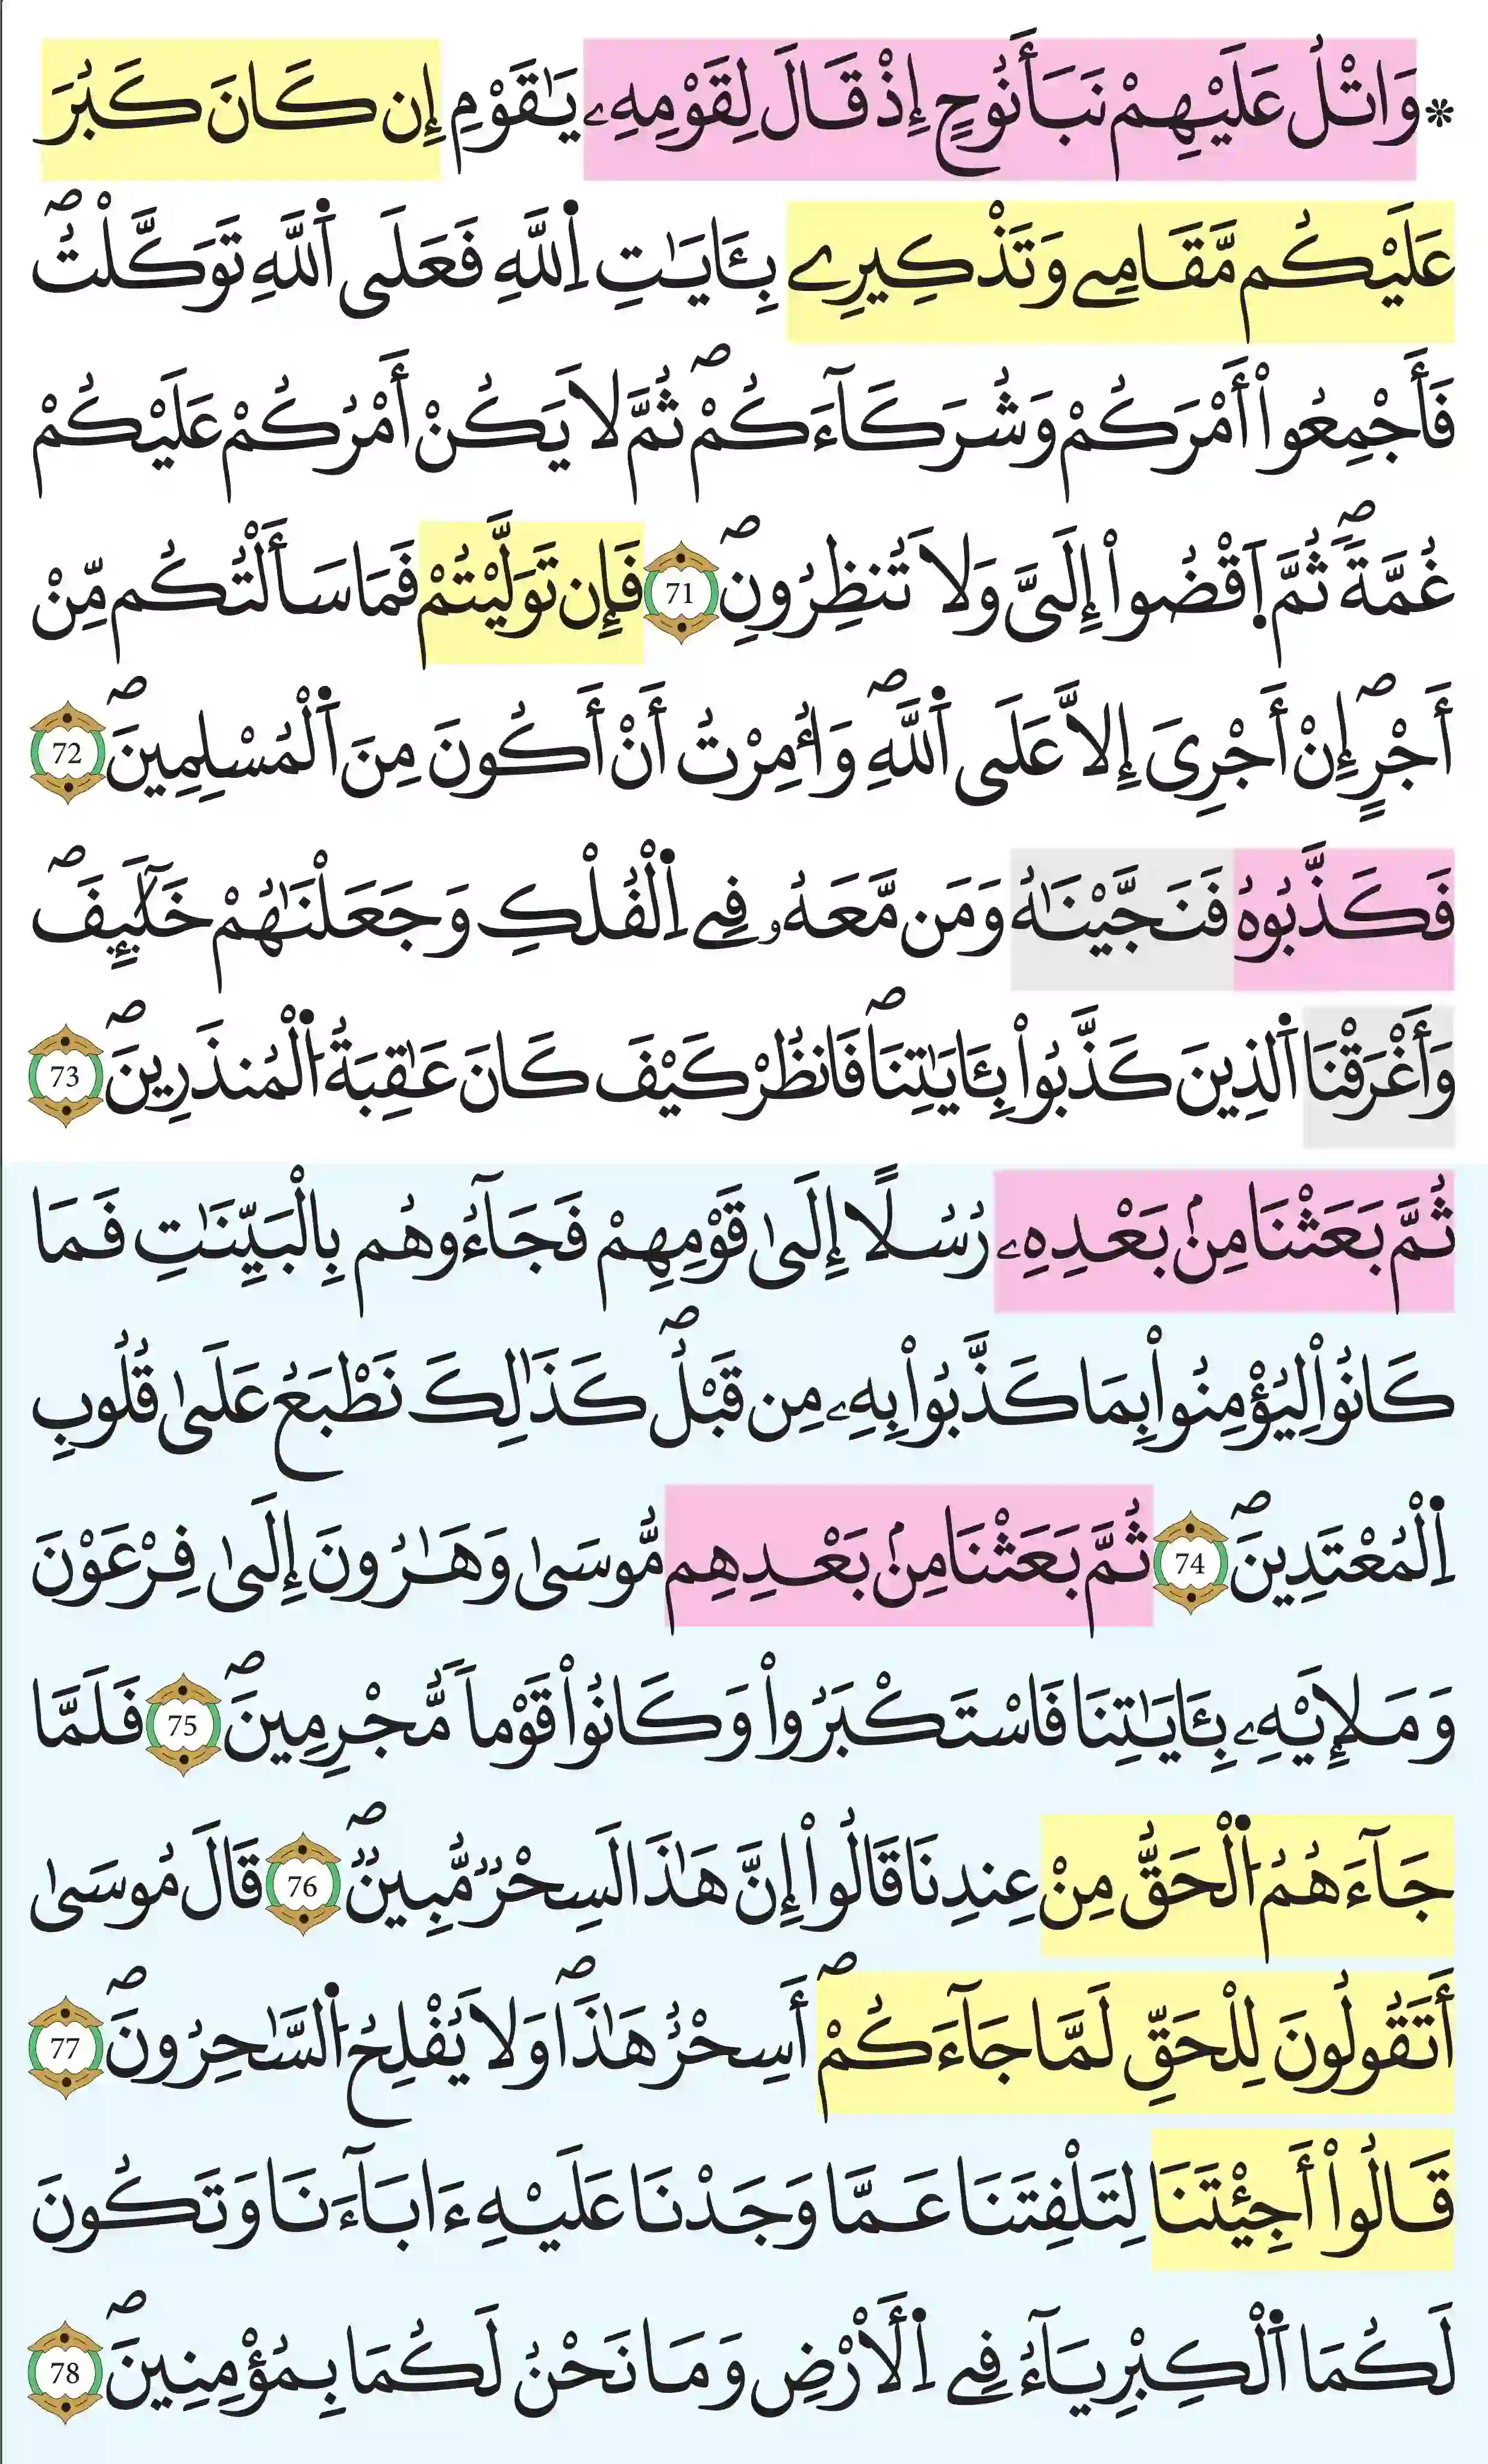 * وَاتْلُ عَلَيْهِمْ نَبَأَ نُوحٍ إِذْ قَالَ لِقَوْمِهِۦ يَٰقَوْمِ إِن كَانَ كَبُرَ
عَلَيْكُم مَّقَامِے وَتَذْكِيرِے بِـَٔايَٰتِ اِ۬للَّهِ فَعَلَى اَ۬للَّهِ تَوَكَّلْتُۖ
فَأَجْمِعُواْ أَمْرَكُمْ وَشُرَكَآءَكُمْۖ ثُمَّ لَا يَكُنْ أَمْرُكُمْ عَلَيْكُمْ
غُمَّةٗۖ ثُمَّ اَ۪قْضُواْ إِلَيَّ وَلَا تُنظِرُونِۖ 71 فَإِن تَوَلَّيْتُمْ فَمَا سَأَلْتُكُم مِّنْ
أَجْرٍۖ إِنْ أَجْرِيَ إِلَّا عَلَى اَ۬للَّهِۖ وَأُمِرْتُ أَنْ أَكُونَ مِنَ اَ۬لْمُسْلِمِينَۖ 72
فَكَذَّبُوهُ فَنَجَّيْنَٰهُ وَمَن مَّعَهُۥ فِے اِ۬لْفُلْكِ وَجَعَلْنَٰهُمْ خَلَٰٓئِفَۖ
وَأَغْرَقْنَا اَ۬لذِينَ كَذَّبُواْ بِـَٔايَٰتِنَاۖ فَانظُرْ كَيْفَ كَانَ عَٰقِبَةُ اُ۬لْمُنذَرِينَۖ 73
ثُمَّ بَعَثْنَا مِنۢ بَعْدِهِۦ رُسُلًا إِلَىٰ قَوْمِهِمْ فَجَآءُوهُم بِالْبَيِّنَٰتِ فَمَا
كَانُواْ لِيُؤْمِنُواْ بِمَا كَذَّبُواْ بِهِۦ مِن قَبْلُۖ كَذَٰلِكَ نَطْبَعُ عَلَىٰ قُلُوبِ
اِ۬لْمُعْتَدِينَۖ 74 ثُمَّ بَعَثْنَا مِنۢ بَعْدِهِم مُّوسَىٰ وَهَٰرُونَ إِلَىٰ فِرْعَوْنَ
وَمَلَإِيْهِۦ بِـَٔايَٰتِنَا فَاسْتَكْبَرُواْ وَكَانُواْ قَوْماٗ مُّجْرِمِينَۖ 75 فَلَمَّا
جَآءَهُمُ اُ۬لْحَقُّ مِنْ عِندِنَا قَالُواْ إِنَّ هَٰذَا لَسِحْرٞ مُّبِينٞۖ 76 قَالَ مُوسَىٰ
أَتَقُولُونَ لِلْحَقِّ لَمَّا جَآءَكُمْۖ أَسِحْرٌ هَٰذَاۖ وَلَا يُفْلِحُ اُ۬لسَّٰحِرُونَۖ 77
قَالُواْ أَجِئْتَنَا لِتَلْفِتَنَا عَمَّا وَجَدْنَا عَلَيْهِ ءَابَآءَنَا وَتَكُونَ
لَكُمَا اَ۬لْكِبْرِيَآءُ فِے اِ۬لْأَرْضِ وَمَا نَحْنُ لَكُمَا بِمُؤْمِنِينَۖ 78